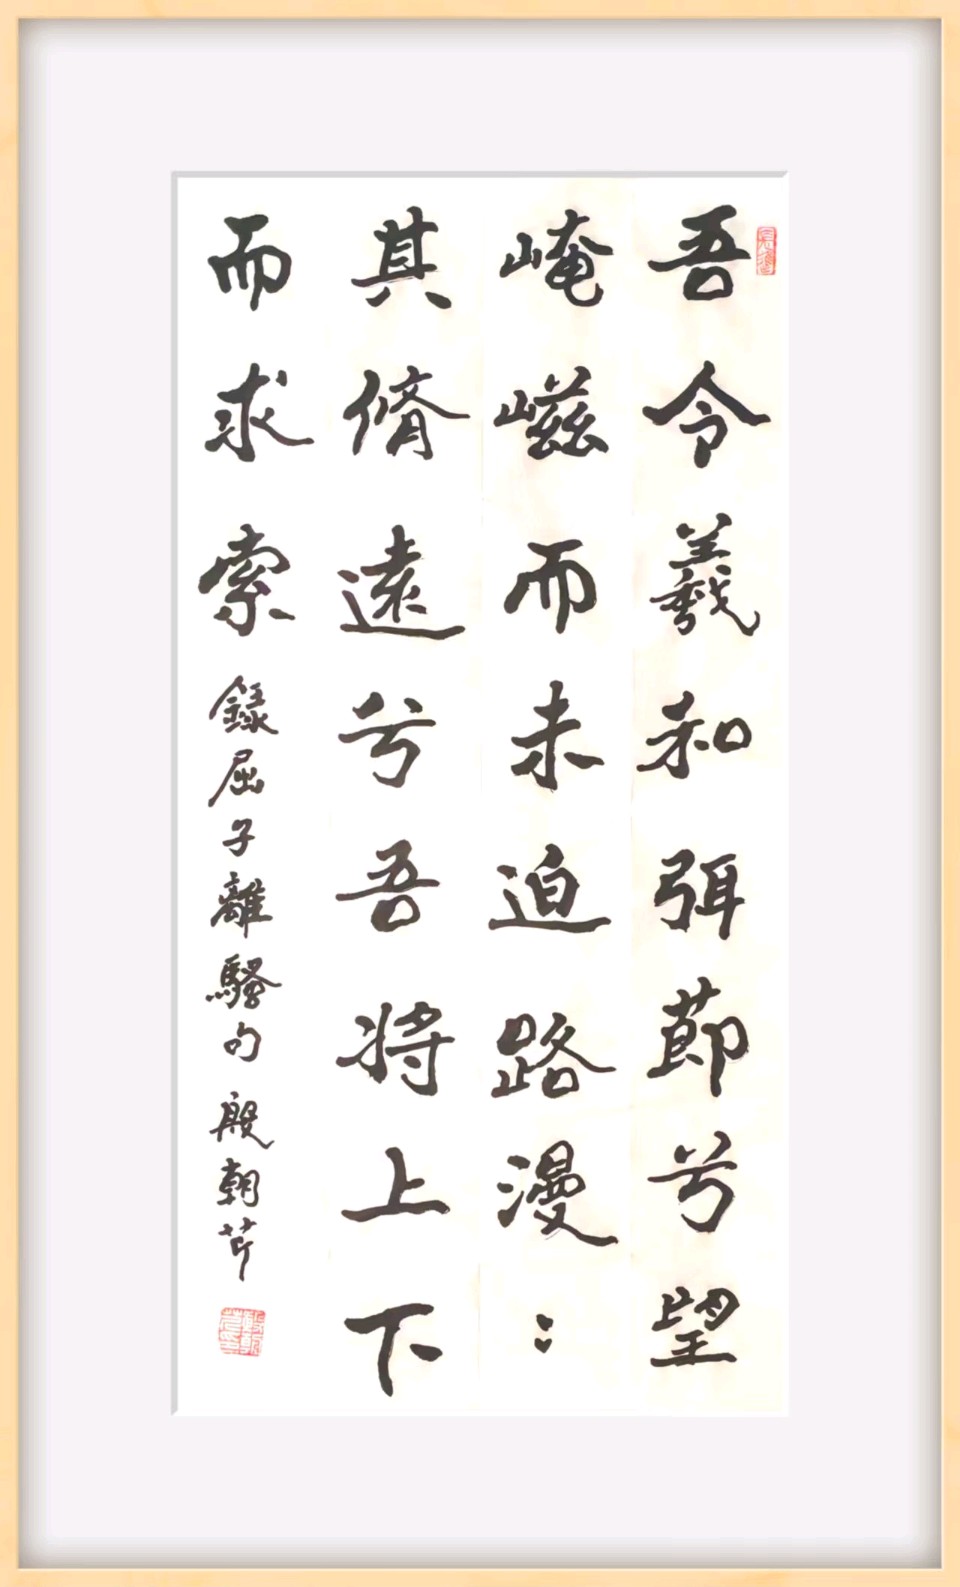 吾令羲和弭節兮望
崦嵫而未迫路漫：
其脩遠兮吾将上下
而求索
錄屈子離騷句 殷朝芹
殷朝芹印